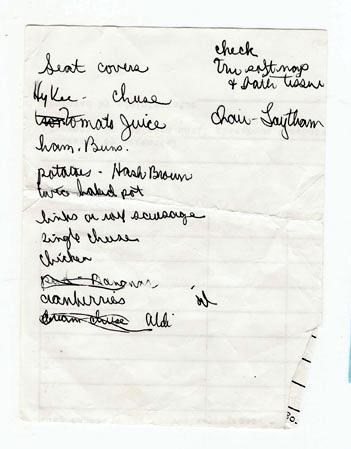 Seat covers
HyVee - Cheese
Tomato Juice
ham. Buns.
potatoes - Hash Brown
twice baked pot
links or roll sausage
single cheese
chicken
Bananas
cranberries
cream cheese Aldi
check
& bath tissue
Chair - Laytham